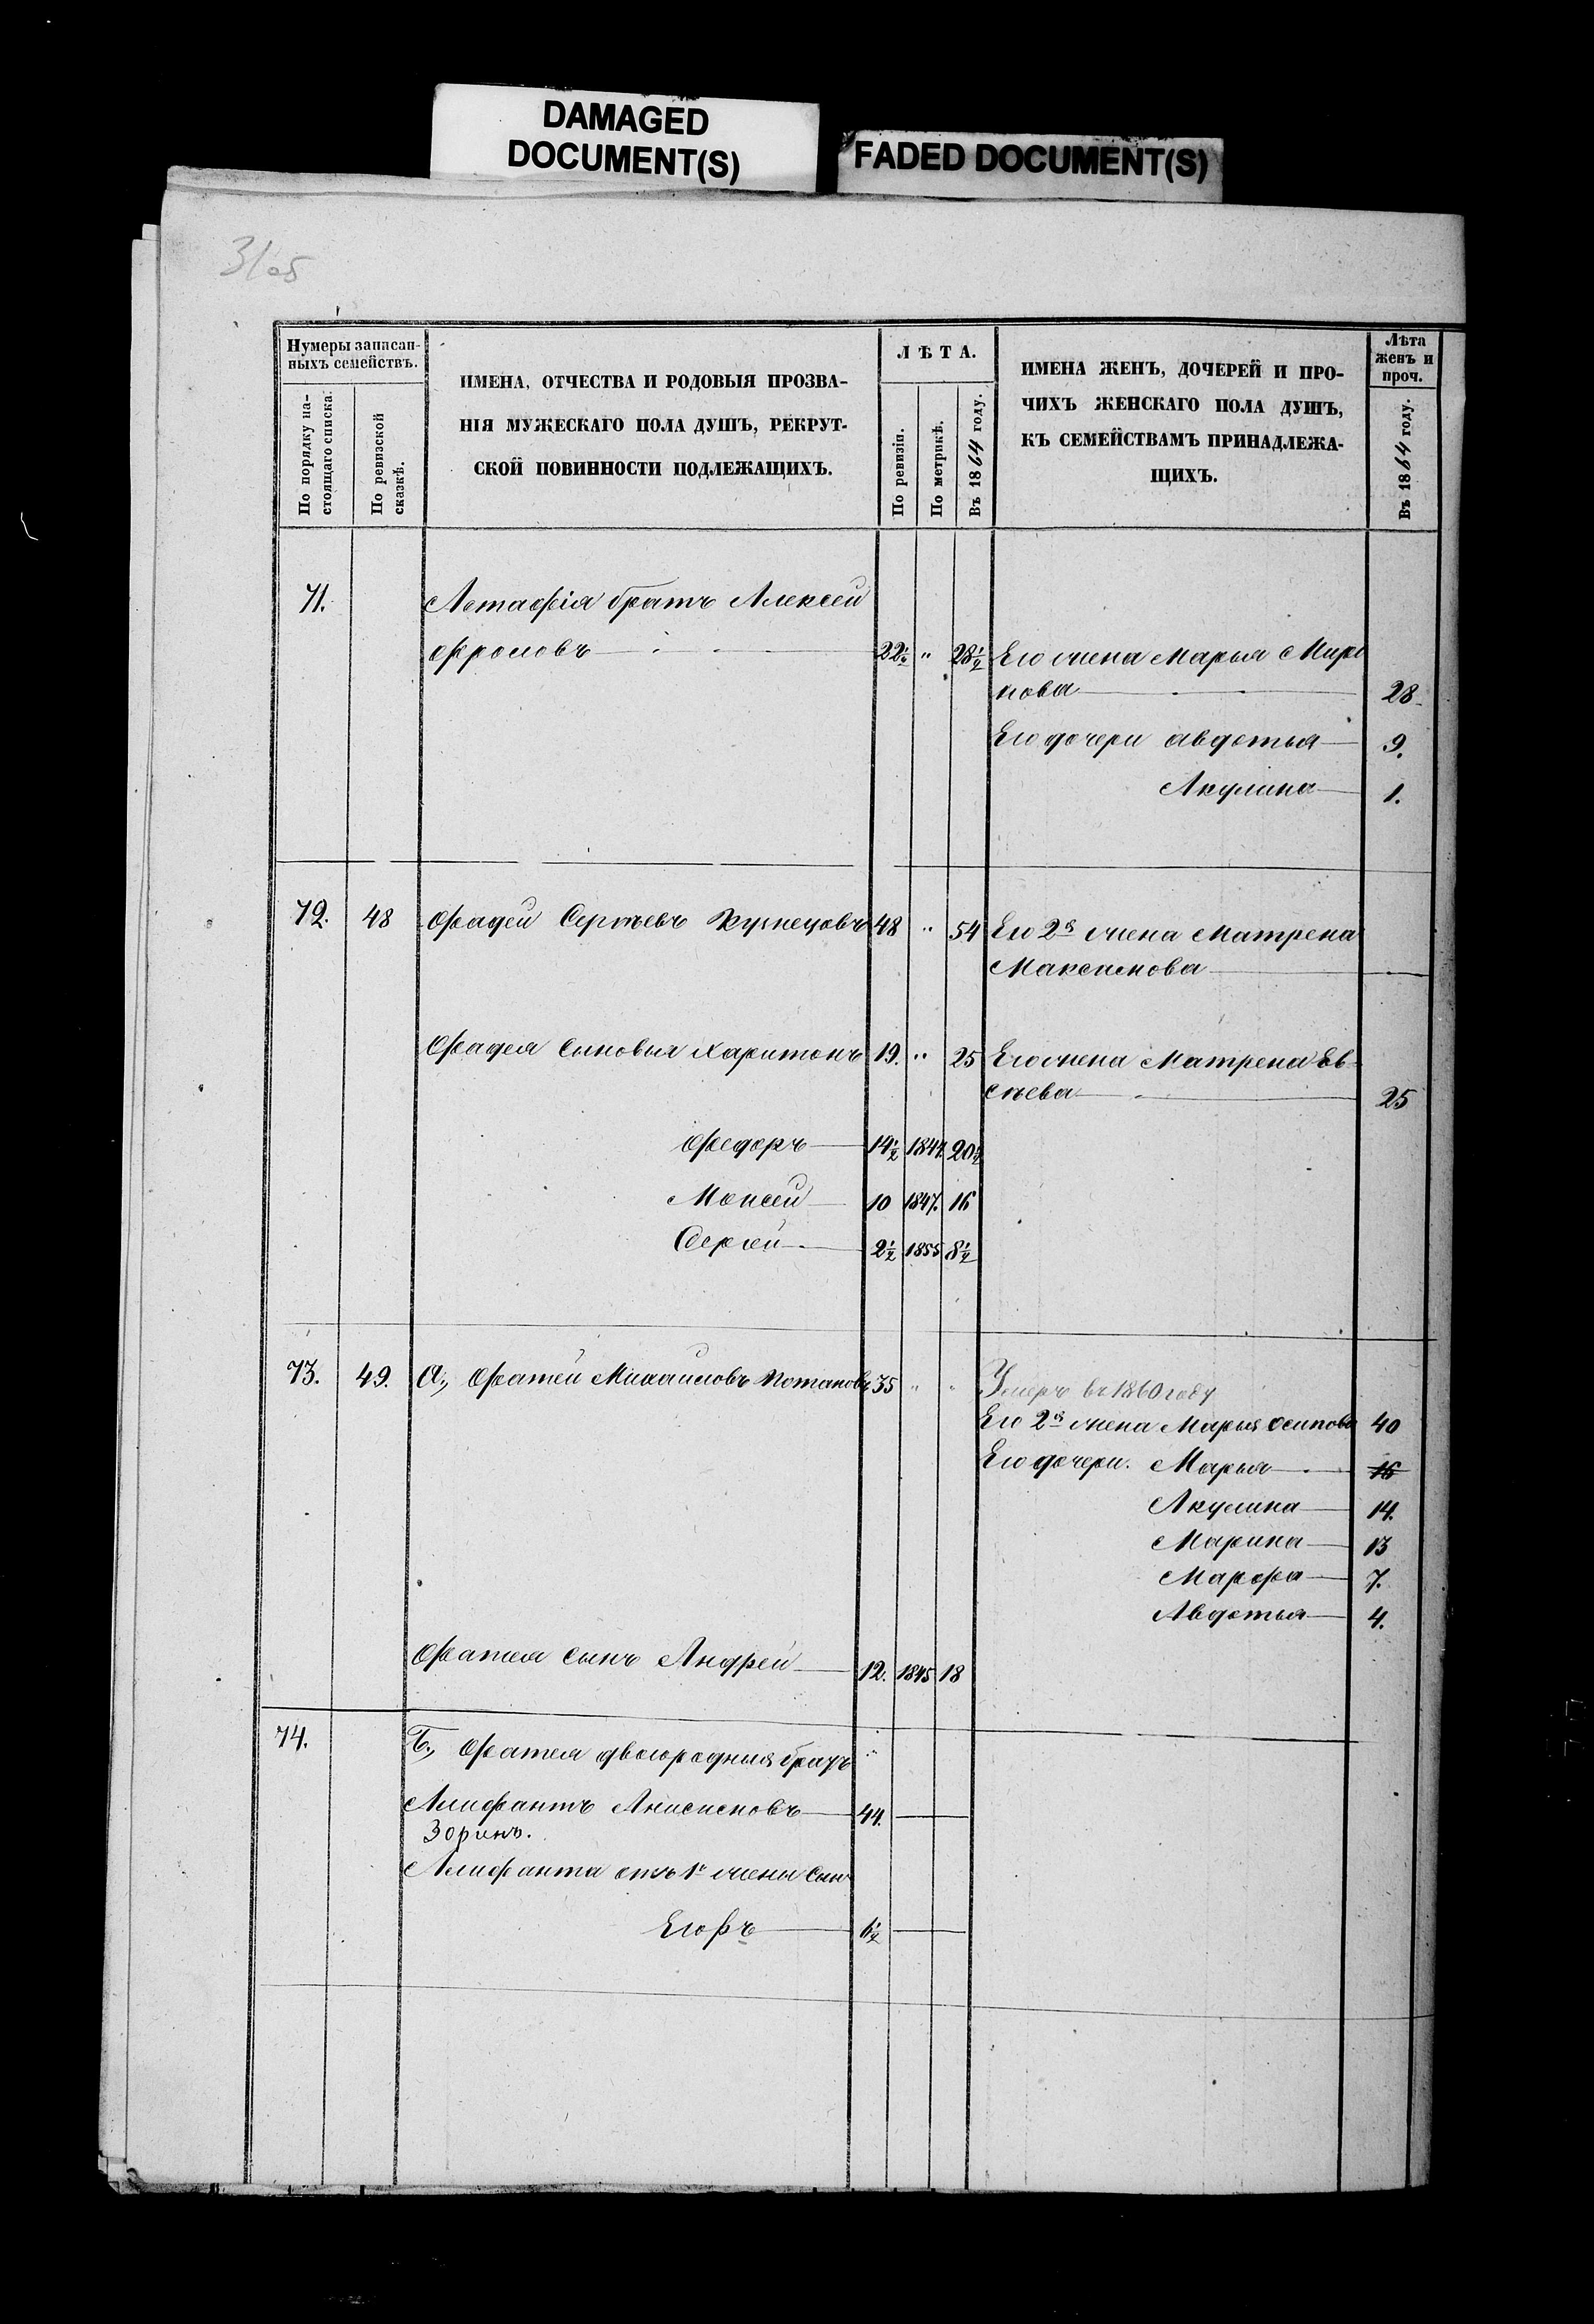 DAMAGED
DOCUMENT(S)
FADED DOCUMENT(S)
Нумеры записан-
ныхъ семействъ.
По порядку на-
стоящаго списка.
По ревизской
сказкѣ.
ИМЕНА, ОТЧЕСТВА И РОДОВЫЯ ПРОЗВА-
НІЯ МУЖЕСКАГО ПОЛА ДУШЪ, РЕКРУТ-
СКОЙ ПОВИННОСТИ ПОДЛЕЖАЩИХЪ.
ЛѢТА.
По ревизіи.
По метрикѣ.
Въ 1864 году.
ИМЕНА ЖЕНЪ, ДОЧЕРЕЙ И ПРО-
ЧИХЪ ЖЕНСКАГО ПОЛА ДУШЪ,
КЪ СЕМЕЙСТВАМЪ ПРИНАДЛЕЖА-
ЩИХЪ.
Лѣта
женъ и
проч.
Въ 1864 году.
71. Астафія братъ Алексѣй
Фроловъ 22½ " 28½ Его жена Марья Миро
нова 28
Его дочери Авдотья 9.
Акулина 1.
72. 48 Фадей Сергѣевъ Кузнецовъ 48 " 54 Его 2я жена Матрена
Максимова
Фадея сыновья Харитонъ 19. " 25 Его жена Матрена Ев-
сѣева 25
Федоръ 14½ 1844. 20½
Моисей 10 1847. 16
Сергѣй 2½ 1855 8½
73. 49. А., Фатей Михаиловъ Потаповъ 35 " " Умеръ въ 1860 году
Его 2я жена Марья Осипова 40
Его дочери. Марья 16
Акулина 14.
Марина 13
Марфа 7.
Авдотья 4.
Фатея сынъ Андрей 12. 1845 18
74. Б., Фатея двоюродныя братъ "
Алифантъ Анисимовъ 44.
Зоринъ.
Алифанта отъ 1й жены сынъ
Егоръ 6½